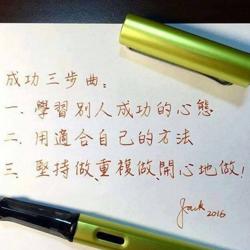 成功三步曲：
一、學習別人成功的心態
二、用適合自己的方法
三、堅持做、重複做、開心地做！
Jack 2016